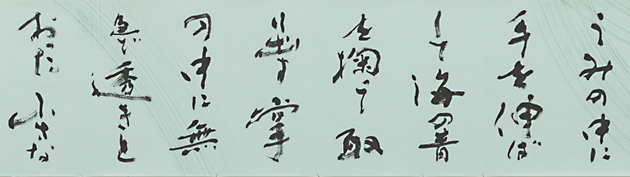 うみの中に
手を伸ば
して海の青
を掬って取
り出す掌
の中に無
色が透きと
おった小さな